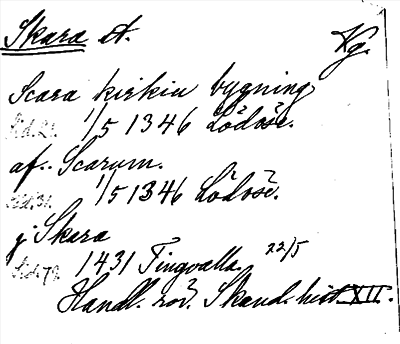 Skara st. Vg.
Scara kirkiu bygning
Sid. 21. 1/5 1346 Lödöse.
af.. Scarum.
Sid. 31. 1/5 1346 Lödöse.
j Skara
Sid. 79. 1431 Tingvalla 22/5
Handl. rör. Skand. hist. XII.